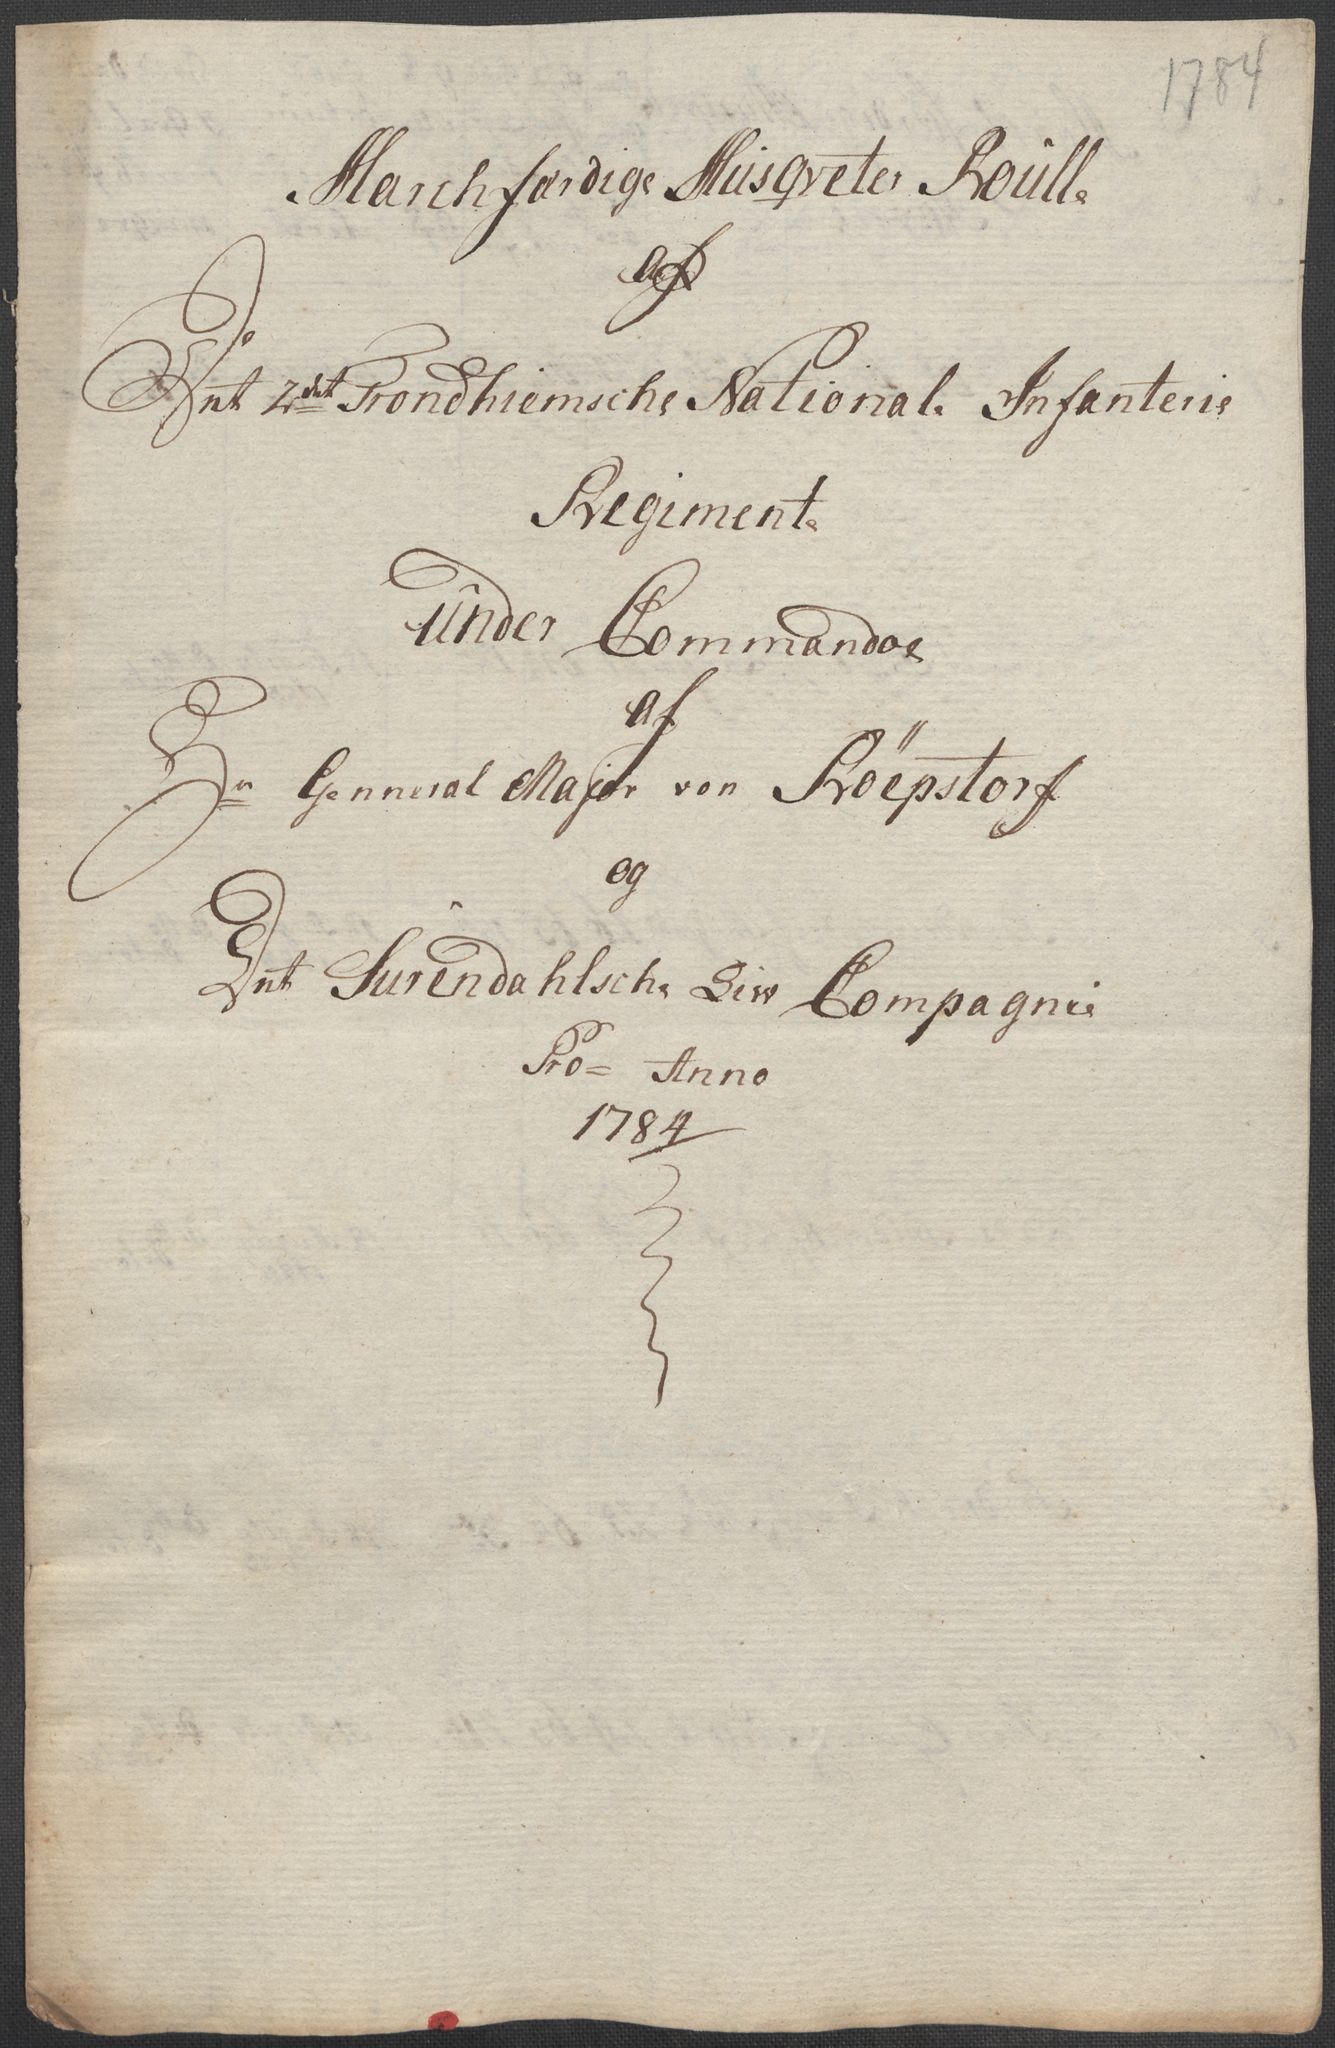 1784
Marchfærdige Müsqveter Roülle
af
Det 2det Trondhiemsche National Infanterie
Regiment
Under Commandoe
af
Hr Genneral Major von Röepstorf
og
Det Surendahlsche Compagnie
Pro= Anno
1784